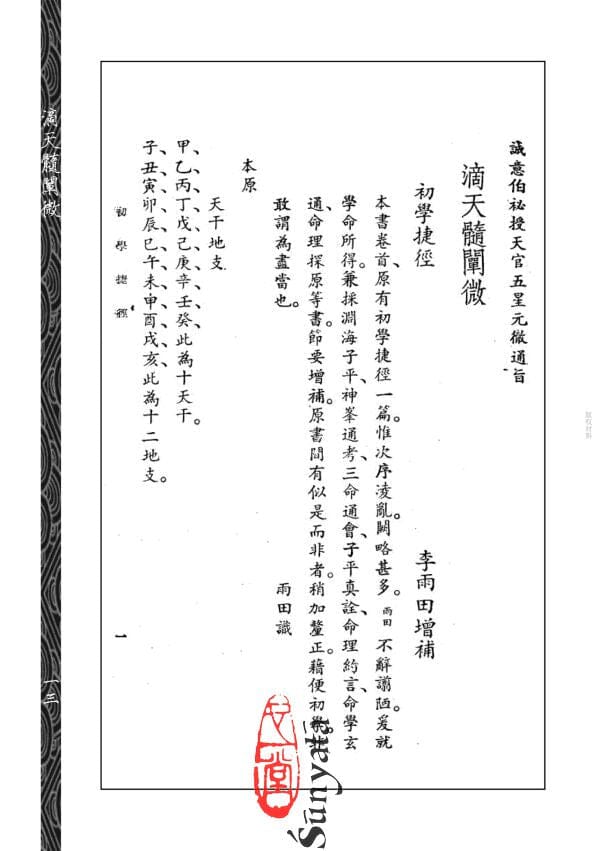 誠意伯祕授天官五星元徵通旨
滴天髓闡微
初學捷徑　李雨田增補
本書卷首、原有初學捷徑一篇。惟次序凌亂。闕略甚多。雨田不辭譾陋。爰就
學命所得。兼採淵海子平、神峯通考、三命通會、子平真詮、命理約言、命學玄
通、命理探原等書。節要增補。原書間有似是而非者。稍加釐正。藉便初學非
敢謂為盡當也。　雨田識
本原
天干地支
甲、乙、丙、丁、戊、己、庚、辛、壬、癸、此為十天干。
子、丑、寅、卯、辰、巳、午、未、申、酉、戌、亥、此為十二地支。
初學捷徑　一
滴天髓闡微　一三
Śūnyatā
版权材料